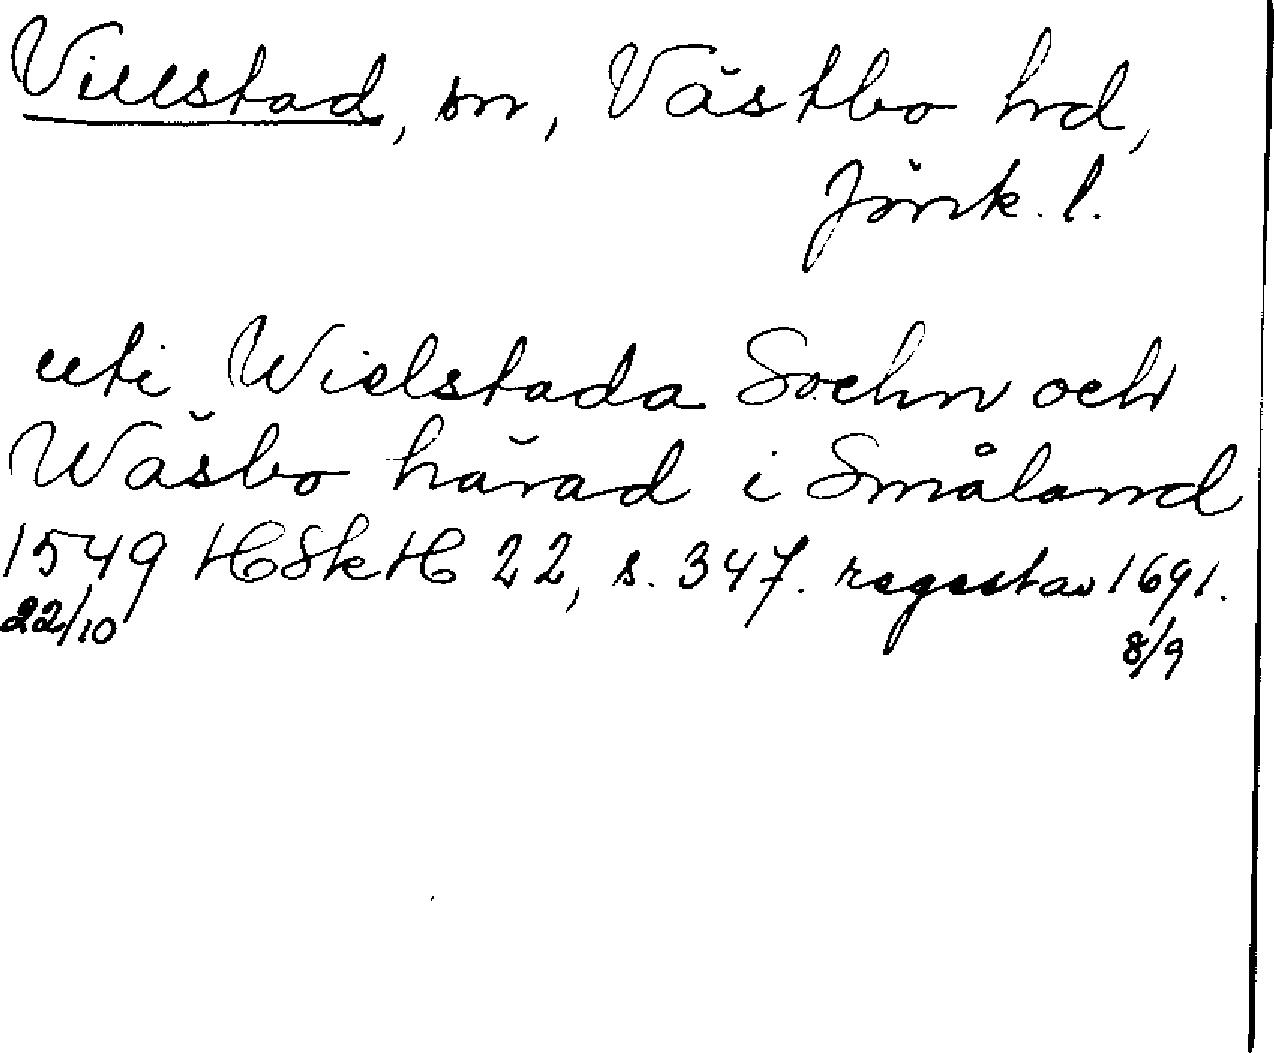 Villstad, sn, Västbo hd,
Jönk. l.
uti Wielstada Sochn och
Wäsbo härad i Småland
1549 HSkH 22, s. 347. regest av 1691.
22/10 8/9